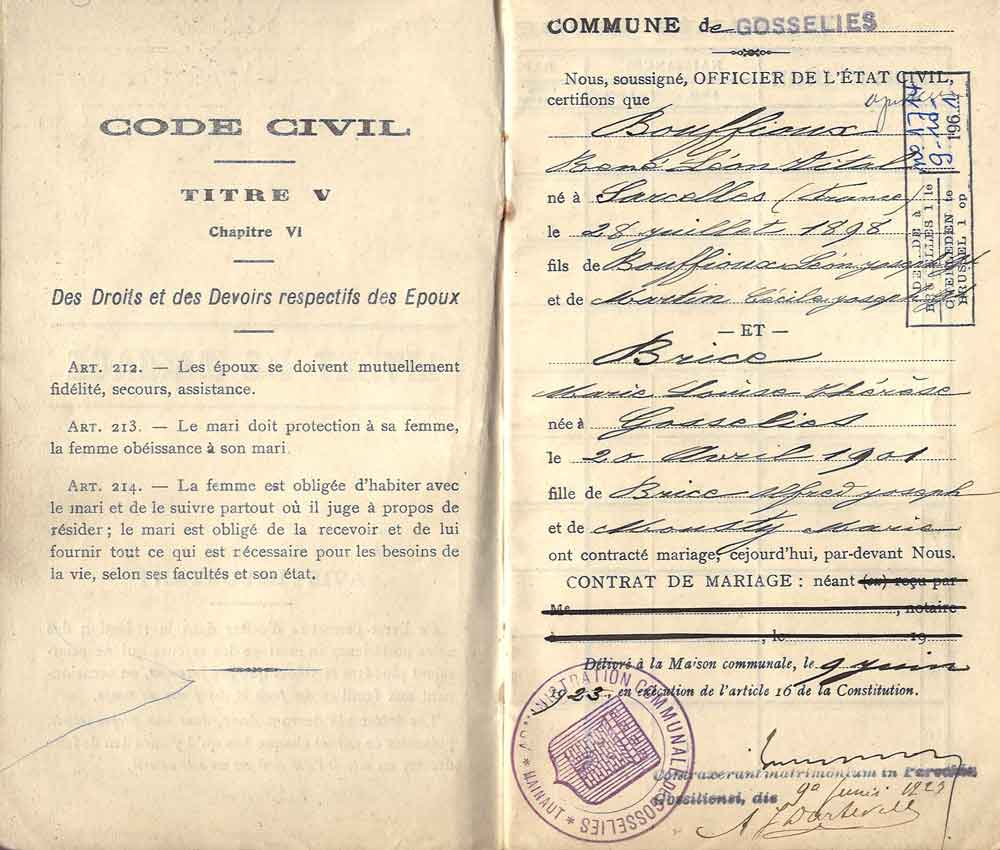 CODE CIVIL
TITRE V
Chapitre VI
Des Droits et des Devoirs respectifs des Epoux
ART. 212. — Les époux se doivent mutuellement
fidélité, secours, assistance.
ART. 213. — Le mari doit protection à sa femme,
la femme obéissance à son mari.
ART. 214. — La femme est obligée d'habiter avec
le mari et de le suivre partout où il juge à propos de
résider ; le mari est obligé de la recevoir et de lui
fournir tout ce qui est nécessaire pour les besoins de
la vie, selon ses facultés et son état.
COMMUNE de GOSSELIES
Nous, soussigné, OFFICIER DE L'ÉTAT CIVIL,
certifions que
Bouffioux
René Léon Vital
né à Sarcelles (France)
le 28 juillet 1898
fils de Bouffioux Léon joseph
et de Martin Cécile joseph
— ET —
Brice
Marie Louise Thérèse
née à Gosselies
le 20 Avril 1901
fille de Brice Alfred joseph
et de Mousty Marie
ont contracté mariage, cejourd'hui, par-devant Nous.
CONTRAT DE MARIAGE : néant (ou) reçu par
Me , notaire
à , le 19
Délivré à la Maison communale, le 9 juin
1923, en exécution de l'article 16 de la Constitution.
ADMINISTRATION COMMUNALE DE GOSSELIES
* HAINAUT *
Contraxerunt matrimonium in
Gosseliensi, die 9a Junii 1923
196
BRUSSEL 1 op